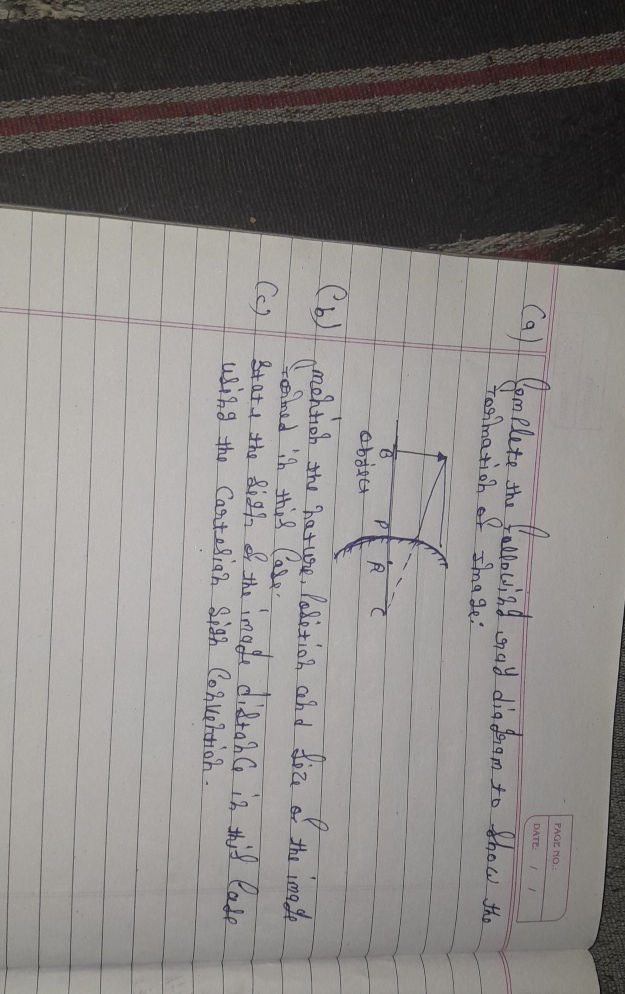 PAGE NO.:
DATE: / /
(a) Complete the following ray diagram to show the
formation of image:
B
P
R
C
object
(b) mention the nature, Position and size of the image
formed in this Case.
(c) state the sign of the image distance in this Case
using the Cartesian sign Convention.